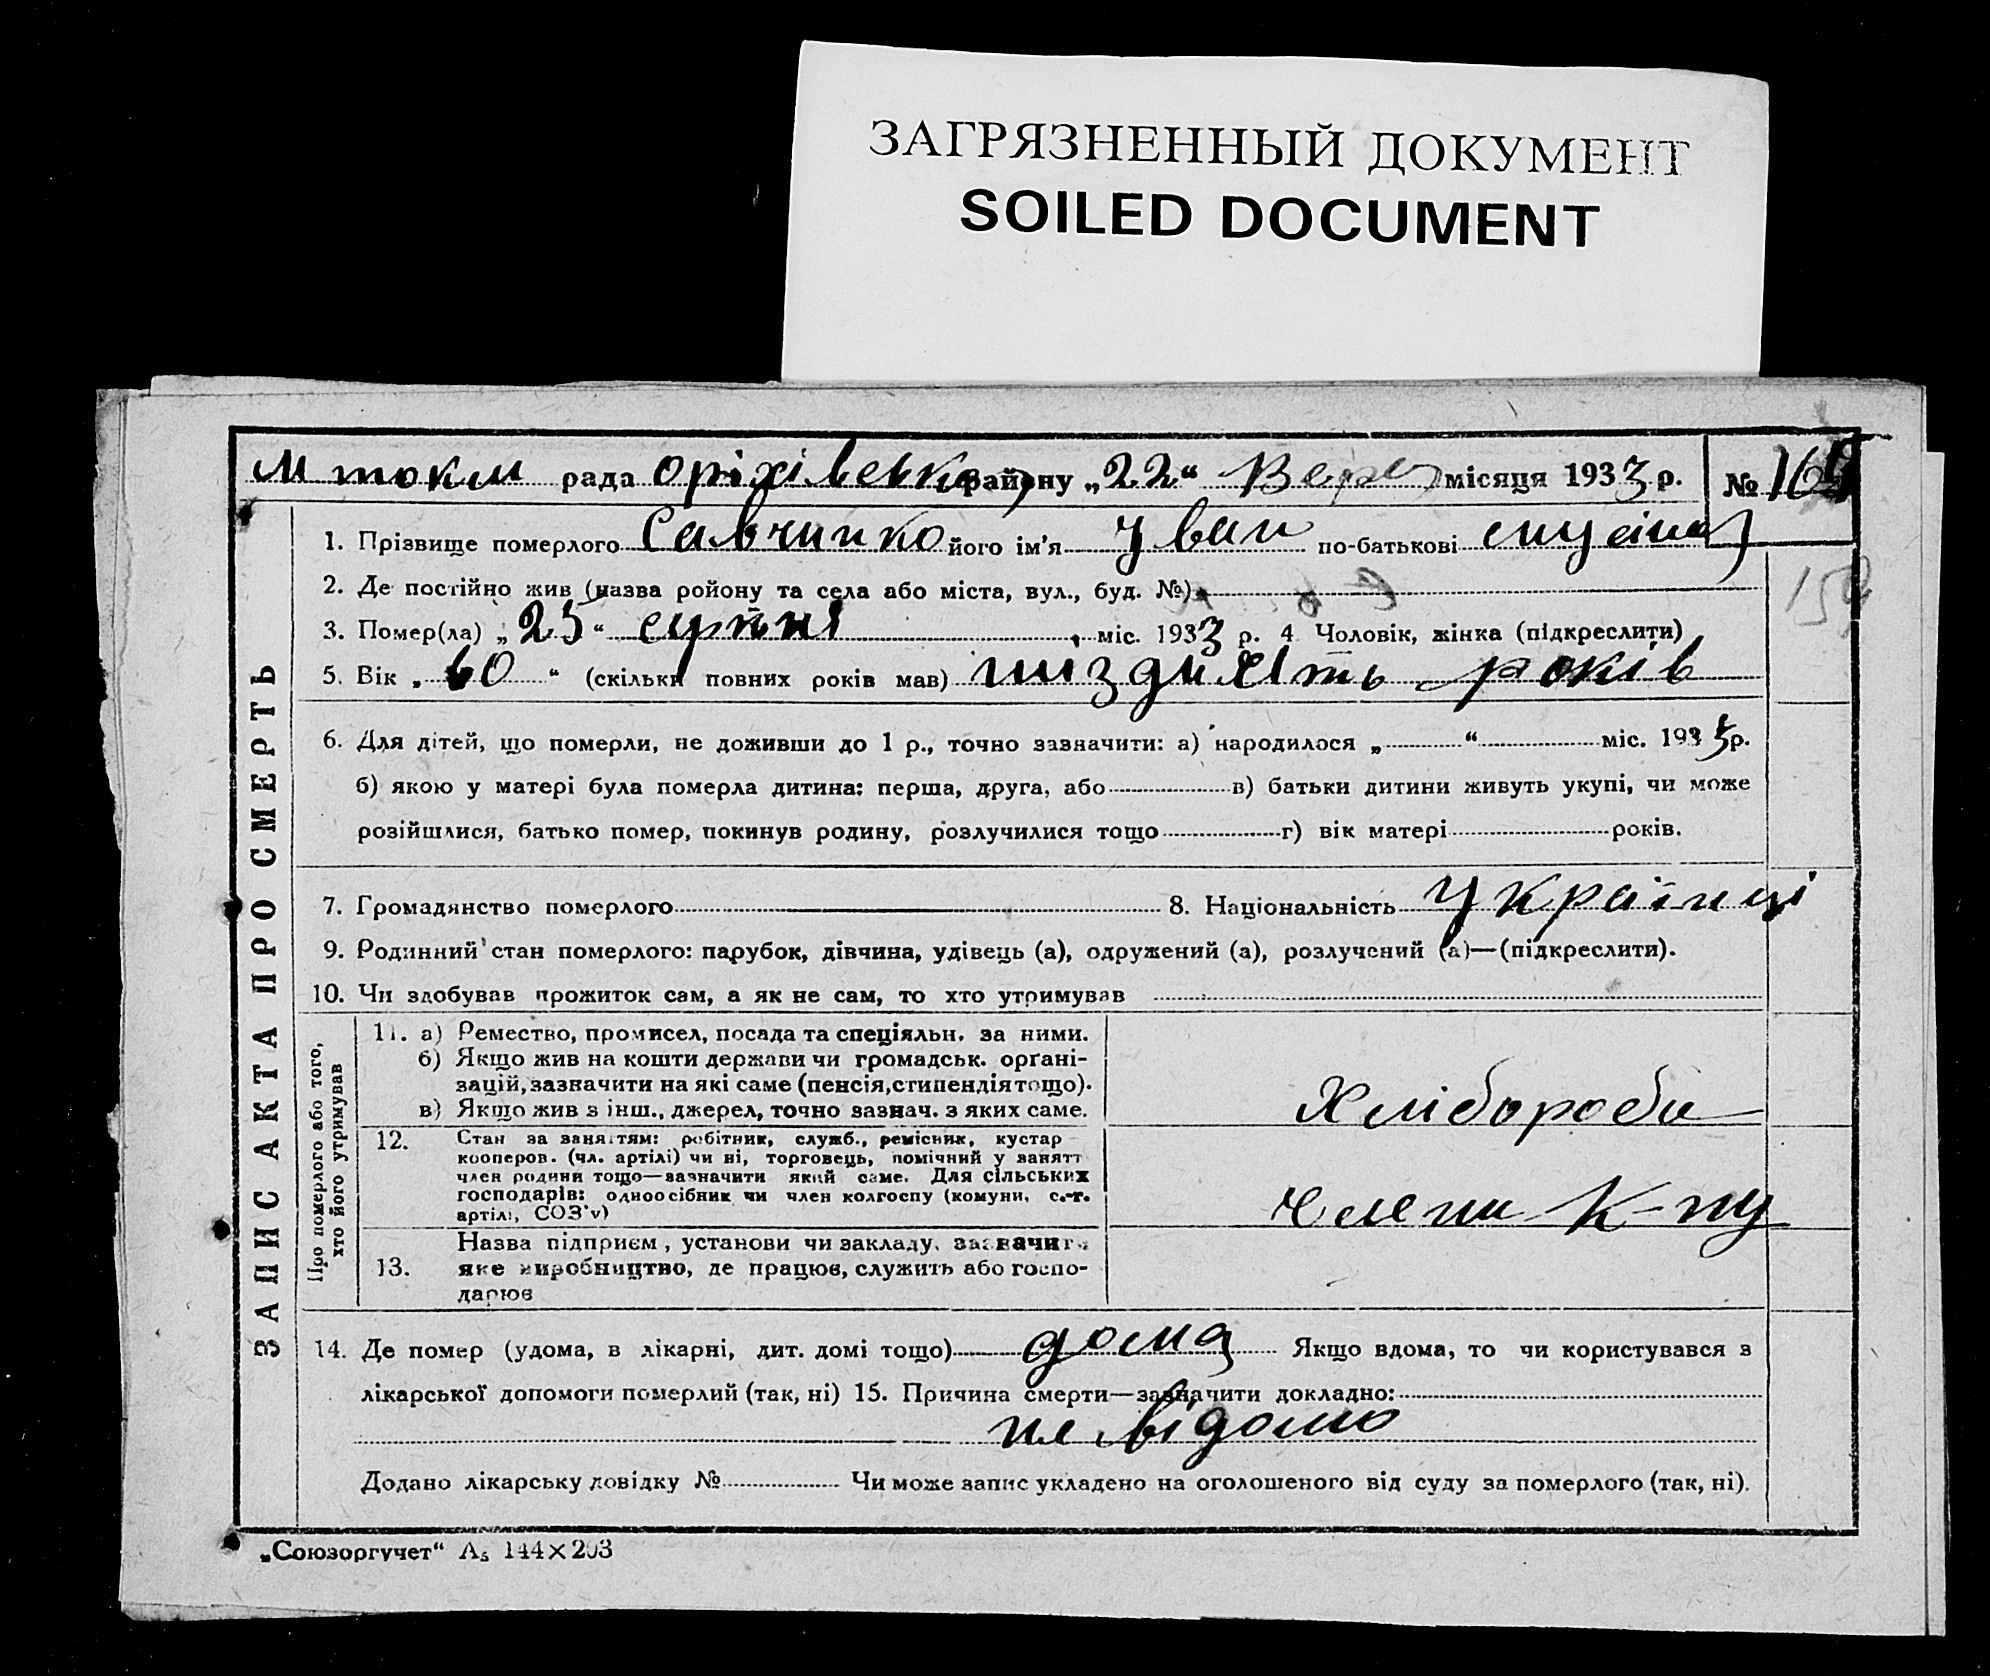 ЗАГРЯЗНЕННЫЙ ДОКУМЕНТ
SOILED DOCUMENT
М токм рада Оріхівсько району „22“ Вере місяця 1933 р. №
1. Прізвище померлого Савчинко його ім'я Іван по-батькові
2. Де постійно жив (назва ройону та села або міста, вул., буд. №)
3. Помер(ла) „25“ серпня міс. 1933 р. 4 Чоловік, жінка (підкреслити)
5. Вік „60“ (скільки повних років мав) шіздисять років
6. Для дітей, що померли, не доживши до 1 р., точно зазначити: а) народилося „ “ міс. 193 р.
б) якою у матері була померла дитина: перша, друга, або в) батьки дитини живуть укупі, чи може
розійшлися, батько помер, покинув родину, розлучилися тощо г) вік матері років.
7. Громадянство померлого 8. Національність Українці
9. Родинний стан померлого: парубок, дівчина, удівець (а), одружений (а), розлучений (а)—(підкреслити).
10. Чи здобував прожиток сам, а як не сам, то хто утримував
ЗАПИС АКТА ПРО СМЕРТЬ
Про померлого або того,
хто його утримував
11. а) Ремество, промисел, посада та спеціяльн. за ними.
б) Якщо жив на кошти держави чи громадськ. орґані-
зацій, зазначити на які саме (пенсія, стипендія тощо).
в) Якщо жив з інш., джерел, точно зазнач. з яких саме.
Хлібороби
12. Стан за заняттям: робітник, служб., ремісник, кустар
кооперов. (чл. артілі) чи ні, торговець, помічний у занятт
член родини тощо—зазначити який саме. Для сільських
господарів: одноосібник чи член колгоспу (комуни, с.-г.
артілі, СОЗ'у)
Члени К-пу
13. Назва підприєм, установи чи закладу, зазначити
яке виробництво, де працює, служить або госпо-
дарює
14. Де помер (удома, в лікарні, дит. домі тощо) дома Якщо вдома, то чи користувався з
лікарської допомоги померлий (так, ні) 15. Причина смерти—зазначити докладно:
не відомо
Додано лікарську довідку № Чи може запис укладено на оголошеного від суду за померлого (так, ні).
„Союзоргучет“ А₅ 144×203